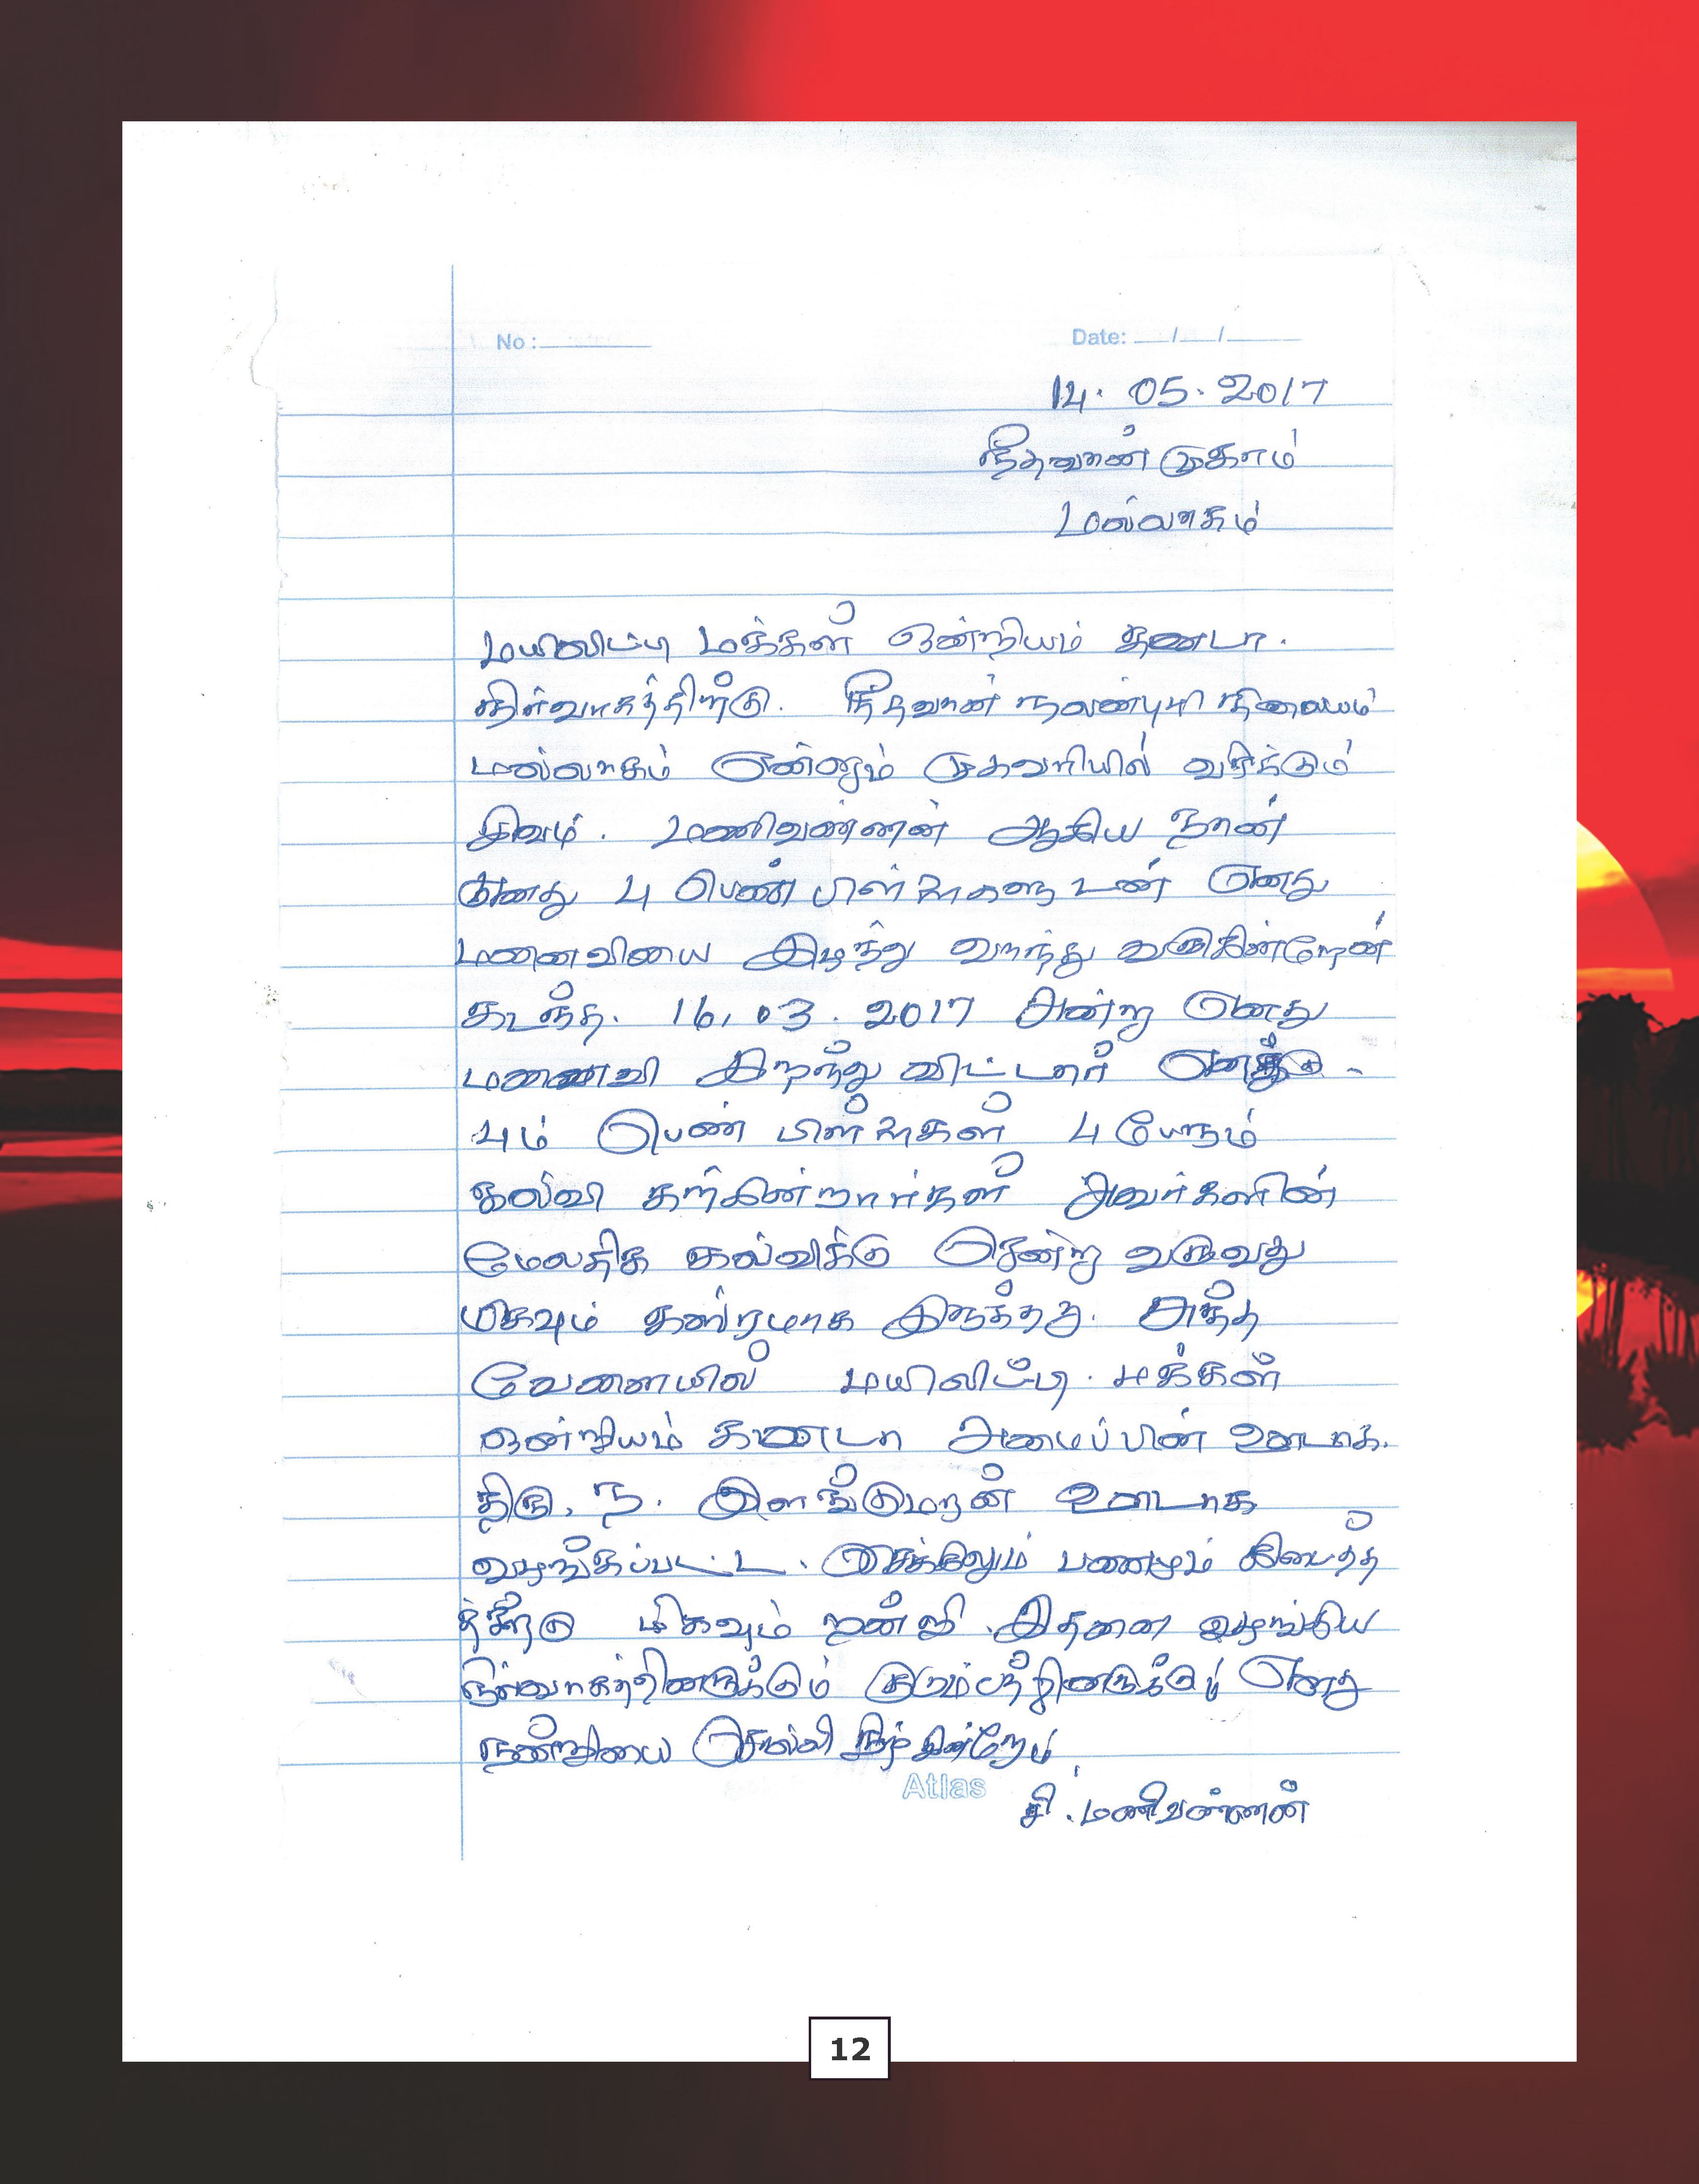 No : Date: __/__/____
14. 05. 2017
நீதவான் முகாம்
மல்லாகம்
மயிலிட்டி மக்கள் ஒன்றியம் கனடா.
நிர்வாகத்திற்கு. நீதவான் நலன்புரி நிலையம்
மல்லாகம் என்னும் முகவரியில் வசிக்கும்
சிவம். மணிவண்ணன் ஆகிய நான்
எனது 4 பெண் பிள்ளைகளுடன் எனது
மனைவியை இழந்து வாழ்ந்து வருகின்றேன்
கடந்த. 16.03.2017 அன்று எனது
மனைவி இறந்து விட்டார் எனக்கு
பெண் பிள்ளைகள் 4 பேரும்
கல்வி கற்கின்றார்கள் அவர்களின்
மேலதிக கல்விக்கு சென்று வருவது
மிகவும் கஸ்ரமாக இருந்தது. அந்த
வேளையில் மயிலிட்டி. மக்கள்
ஒன்றியம் கனடா அமைப்பின் ஊடாக.
திரு. ந. இளங்குமரன் ஊடாக
வழங்கப்பட்ட. சைக்கிலும் பணமும் கிடைத்த
மிகவும் நன்றி. இதனை வழங்கிய
நிர்வாகத்தினருக்கும் குடும்பத்தினருக்கும் எனது
நன்றியை சொல்லி நிற்கின்றேம்
Atlas
சி. மணிவண்ணன்
12